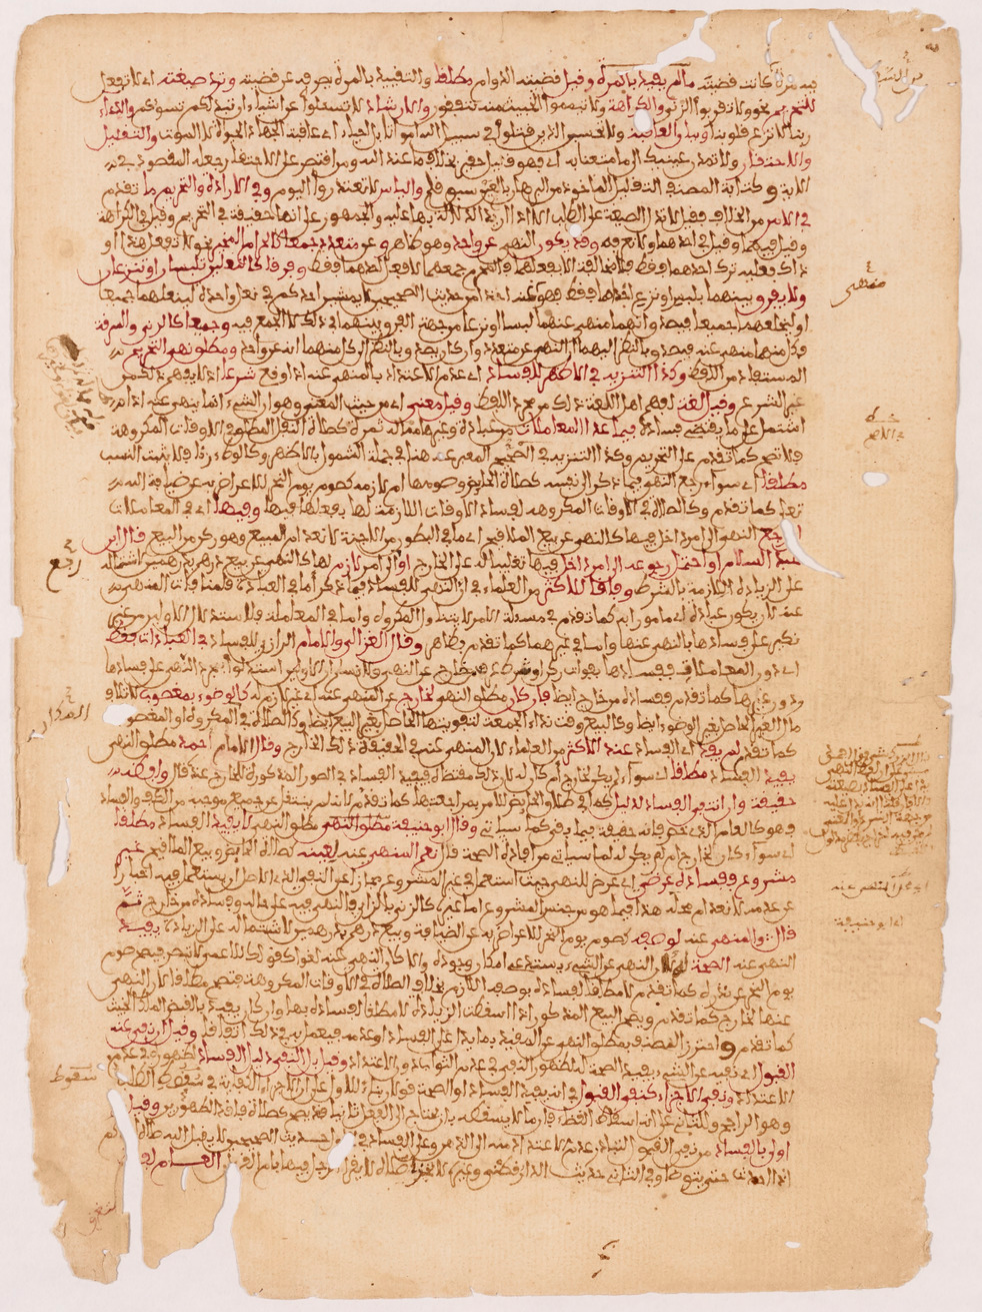 فيه مرة كانت قضيته ما لم يقيد بالمرة وقيل قضيته الدوام مطلقا والتقييد بالمرة يصرفه عن قضيته وترد صيغته اي لا تفعل
للتحريم نحو ولا تقربوا الزنى والكراهة ولا تيمموا الخبيث منه تنفقون والارشاد لا تسئلوا عن اشياء ان تبد لكم تسؤكم والدعاء
ربنا لا تزغ قلوبنا وبيان العاقبة ولا تحسبن الذين قتلوا في سبيل الله امواتا بل احياء اي عاقبة الجهاد الحياة لا الموت والتقليل
والاحتقار ولا تمدن عينيك الى ما متعنا به اي فهو قليل حقير بخلاف ما عند الله ومن اقتصر على الاحتقار جعله المقصود في
الاية وكتابة المصنف التقليل الماخوذ من البرهان بالعين سبق قلم والياس لا تعتذروا اليوم وفي الارادة والتحريم ما تقدم
في الامر من الخلاف فقيل لا تدل الصيغة على الطلب الا اذا اريد الدلالة بها عليه والجمهور على انها حقيقة في التحريم وقيل في الكراهة
وقيل فيهما وقيل في احدهما ولا نعرفه وقد يكون النهي عن واحد وهو ظاهر وعن متعدد جمعا كالحرام المخير نحو لا تفعل هذا او
ذاك فعليه ترك احدهما فقط فلا مخالفة الا بفعلهما فالمحرم جمعهما لا فعل احدهما فقط وفرقا كالنعلين تلبسان او تنزعان
ولا يفرق بينهما بلبس او نزع احداهما فقط فهو منهي عنه اخذا من حديث الصحيحين لا يمشين احدكم في نعل واحدة لينعلهما جميعا
او ليخلعهما جميعا فيصدق انهما منهي عنهما لبسا او نزعا من جهة الفرق بينهما في ذلك لا الجمع فيه وجميعا كالزنى والسرقة
فكل منهما منهي عنه فيصدق بالنظر اليهما ان النهي عن متعدد وان كان يصدق بالنظر الى كل منهما انه عن واحد ومطلق نهي التحريم
المستفاد من اللفظ وكذا التنزيه في الاظهر للفساد اي عدم الاعتداد بالمنهي عنه اذا وقع شرعا اذ لا يفهم ذلك من
غير الشرع وقيل لغة لفهم اهل اللغة ذلك من مجرد اللفظ وقيل معنى اي من حيث المعنى وهو ان الشيء انما ينهى عنه اذا
اشتمل على ما يقتضي فساده فيما عدا المعاملات من عبادة وغيرها مما له ثمرة كصلاة النفل المطلق في الاوقات المكروهة
فلا تصح كما تقدم على التحريم وكذا التنزيه في الصحيح المعبر عنه هنا في جملة الشمول بالاظهر وكالوطء زنا فلا يثبت النسب
مطلقا اي سواء رجع النهي فيما ذكر الى نفسه كصلاة الحائض وصومها ام لازمه كصوم يوم النحر للاعراض به عن ضيافة الله
تعلى كما تقدم وكالصلاة في الاوقات المكروهة لفساد الاوقات اللازمة لها بفعلها فيها وفيها اي في المعاملات
ان رجع النهي الى امر داخل فيها كالنهي عن بيع الملاقيح اي ما في البطون من الاجنة لانعدام المبيع وهو ركن من البيع قال ابن
عبد السلام او احتمل رجوعه الى امر داخل فيها تغليبا له على الخارج او الى امر لازم لها كالنهي عن بيع درهم بدرهمين لاشتماله
على الزيادة اللازمة بالشرط وفاقا للاكثر من العلماء في ان النهي للفساد فيما ذكر اما في العبادة فلمنافاة المنهي
عنه لان يكون عبادة اي مامورا به كما تقدم في مسئلة الامر لا يتناول المكروه واما في المعاملة فلاستدلال الاولين من غير
نكير على فسادها بالنهي عنها واما في غيرهما كما تقدم فظاهر وقال الغزالي والامام الرازي للفساد في العبادات فقط
اي دون المعاملات ففسادها بفوات ركن او شرط عرف من خارج عن النهي ولا نسلم ان الاولين استدلوا بمجرد النهي على فسادها
ودون غيرها كما تقدم ففساده من خارج ايضا فان كان مطلق النهي لخارج عن المنهي عنه اي غير لازم له كالوضوء بمغصوب لاتلاف
مال الغير الحاصل بغير الوضوء ايضا وكالبيع وقت نداء الجمعة لتفويتها الحاصل بغير البيع ايضا وكالصلاة في المكروه او المغصوب
كما تقدم لم يفد اي الفساد عند الاكثر من العلماء لان المنهي عنه في الحقيقة ذلك الخارج وقال الامام احمد مطلق النهي
يفيد الفساد مطلقا اي سواء لم يكن لخارج ام كان له لان ذلك مقتضاه فيفيد الفساد في الصور المذكورة للخارج عنده قال ولفظه
حقيقة وان انتفى الفساد لدليل كما في طلاق الحائض للامر بمراجعتها كما تقدم لانه لم ينتقل عن جميع موجبه من الكف والفساد
فهو كالعام الذي خص فانه حقيقة فيما بقي كما سياتي وقال ابو حنيفة مطلق النهي لا يفيد الفساد مطلقا
اي سواء كان لخارج ام لم يكن له لما سياتي من افادته الصحة قال نعم المنهي عنه لعينه كصلاة الحائض وبيع الملاقيح غير
مشروع ففساده عرضي اي عرض للنهي حيث استعمل في غير المشروع مجازا عن النفي الذي الاصل ان يستعمل فيه اخبارا
عن عدمه لانعدام محله هذا فيما هو من جنس المشروع اما غيره كالزنى بالزاي فالنهي فيه على حاله وفساده من خارج ثم
قال والمنهي عنه لوصفه كصوم يوم النحر للاعراض به عن الضيافة وبيع درهم بدرهمين لاشتماله على الزيادة يفيد
النهي عنه الصحة له لان النهي عن الشيء يستدعي امكان وجوده والا كان النهي عنه لغوا كقولك للاعمى لا تبصر فيصح صوم
يوم النحر عن نذره كما تقدم لا مطلقا لفساده بوصفه اللازم بخلاف الصلاة في الاوقات المكروهة فتصح مطلقا لان النهي
عنها لخارج كما تقدم ويصح البيع المذكور اذا اسقطت الزيادة لا مطلقا لفساده بها وان كان يفيد بالقبض الملك الخبيث
كما تقدم واحترز المصنف بمطلق النهي عن المقيد بما يدل على الفساد او عدمه فيعمل به في ذلك اتفاقا وقيل ان نفي عنه
القبول اي نفيه عن الشيء يفيد الصحة له لظهور النفي في عدم الثواب دون الاعتداد وقيل بل النفي دليل الفساد لظهوره في عدم
الاعتداد ونفي الاجزاء كنفي القبول في انه يفيد الفساد او الصحة قولان بناء للاول على ان الاجزاء الكفاية في سقوط الطلب
وهو الراجح والثاني على انه اسقاط القضاء فان ما لا يسقطه بان يحتاج الى الفعل ثانيا قد يصح كصلاة فاقد الطهورين وقيل
اولى بالفساد من نفي القبول لتبادر عدم الاعتداد منه الى الذهن وعلى الفساد في حديث الصحيحين لا يقبل الله صلاة
اذا احدث حتى يتوضا وفي الثاني حديث الدارقطني وغيره لا تجزئ صلاة لا يقرا الرجل فيها بام القرءان العام
منهي
رجع
سقوط